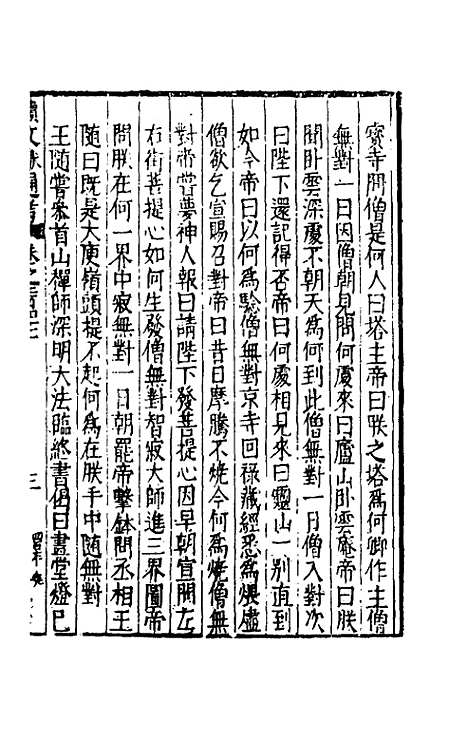 寳寺問僧是何人曰塔主帝曰朕之塔爲何卿作主僧
無對一日因僧朝見問何處來曰廬山卧雲庵帝曰朕
聞卧雲深處不朝天爲何到此僧無對一日僧入對次
曰陛下還記得否帝曰何處相見來曰靈山一别直到
如今帝曰以何爲驗僧無對京寺回祿藏經悉爲煨燼
僧欲乞宣賜召對帝曰昔日摩騰不燒今何爲燒僧無
對帝嘗夢神人報曰請陛下發菩提心因早朝宣問左
右街菩提心如何生發僧無對智寂大師進三界圖帝
問朕在何一界中寂無對一日朝罷帝擊鉢問丞相王
隨曰既是大庾嶺頭提不起何爲在朕手中隨無對
王隨嘗參首山禪師深明大法臨終書偈曰畫堂燈已
續文獻通考 卷之
三